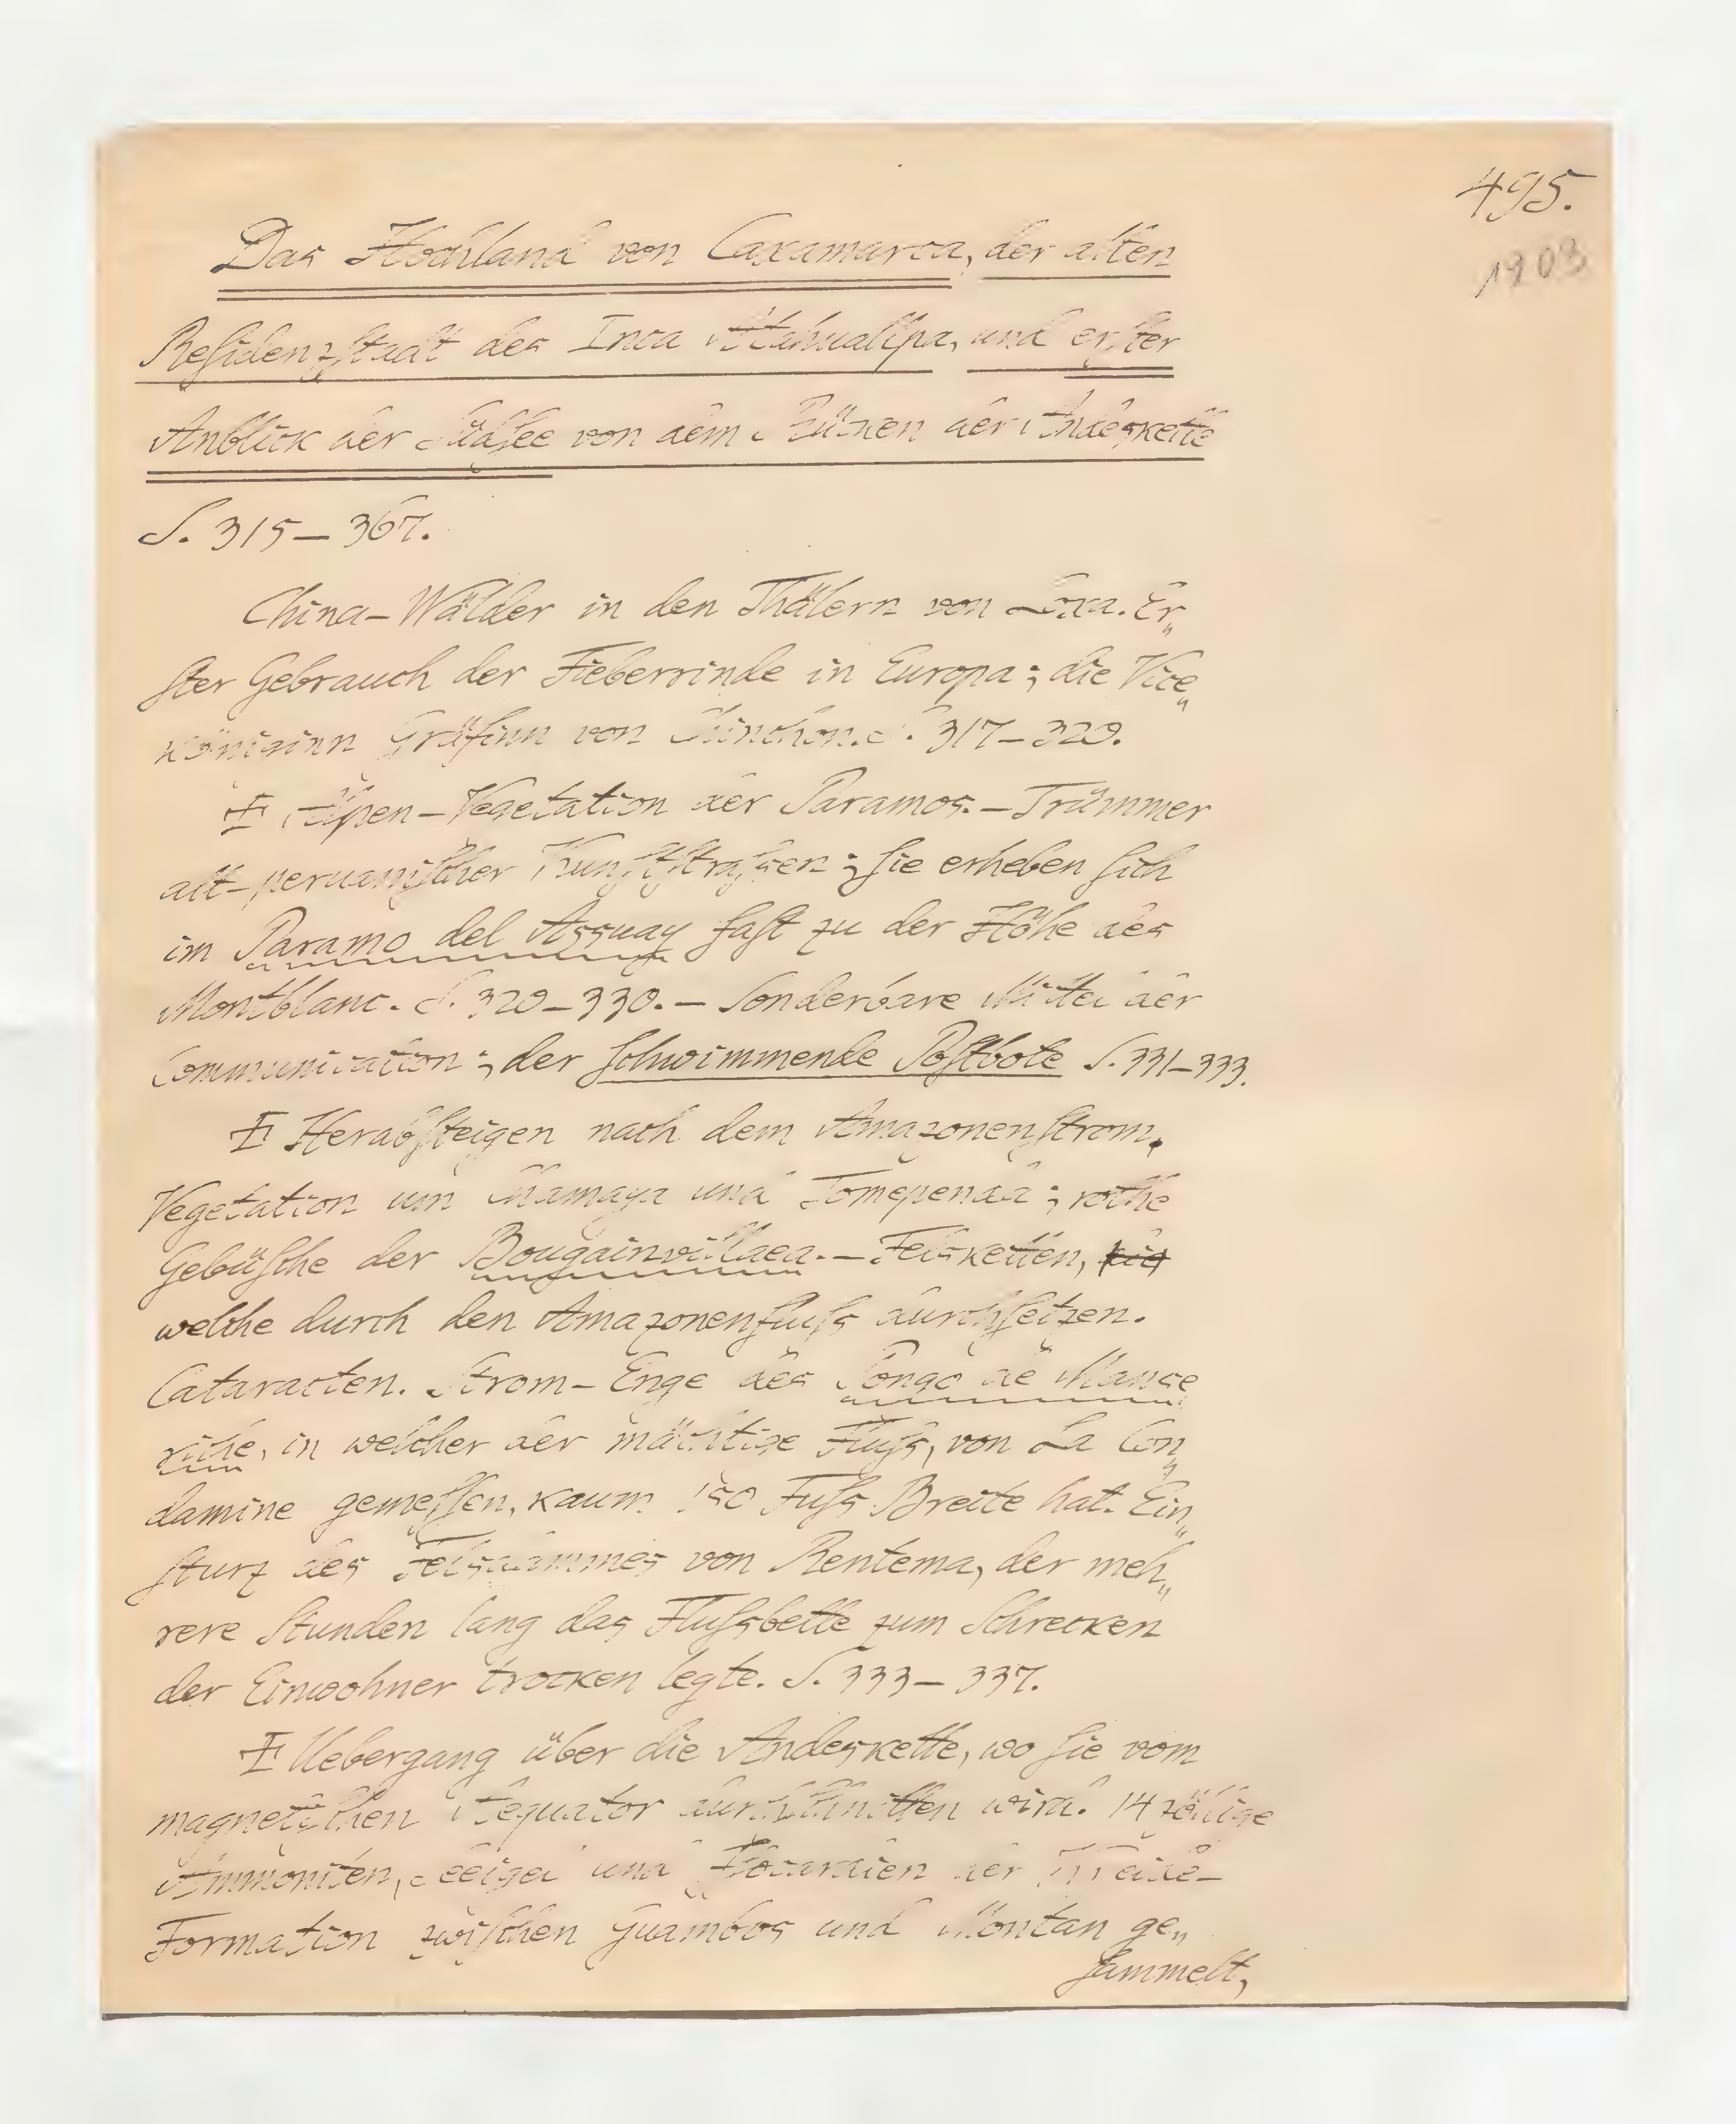 495.
1903
Das Hochland von Caxamarca, der alten
Reſidenzſtadt des Inca Atahuallpa, und erſter
Anblick der Südſee von dem Rücken der Andeskette
S. 315–367.
China-Wälder in den Thälern von Loxa. Er„
ſter Gebrauch der Fieberrinde in Europa; die Vice„
königinn Gräfinn von Chinchon. S. 317–320.
Alpen-Vegetation der Paramos. – Trümmer
alt-peruaniſcher Kunſtſtraſsen; ſie erheben ſich
im Paramo del Assuay faſt zu der Höhe des
Montblanc. S. 320–330. – Sonderbare Mittel der
Communication; der ſchwimmende Poſtbote S. 331–333.
Herabſteigen nach dem Amazonenſtrom.
Vegetation um Chamaya und Tomependa; rothe
Gebüſche der Bougainvillaea. – Felsketten,
welche durch den Amazonenfluſs durchſetzen.
Cataracten. Strom-Enge des Pongo de Manse
riche, in welcher der mächtige Fluſs, von La Con„
damine gemeſſen, kaum 150 Fuſs Breite hat. Ein„
ſturz des Felsdammes von Rentema, der meh„
rere Stunden lang das Fluſsbette zum Schrecken
der Einwohner trocken legte. S. 333–337.
Uebergang über die Andeskette, wo ſie vom
magnetiſchen Aequator durchſchnitten wird. 14 zöllige
Ammoniten, Seeigel und Iſocardien der Kreide-
Formation zwiſchen Guambos und Montan ge„
ſammelt,